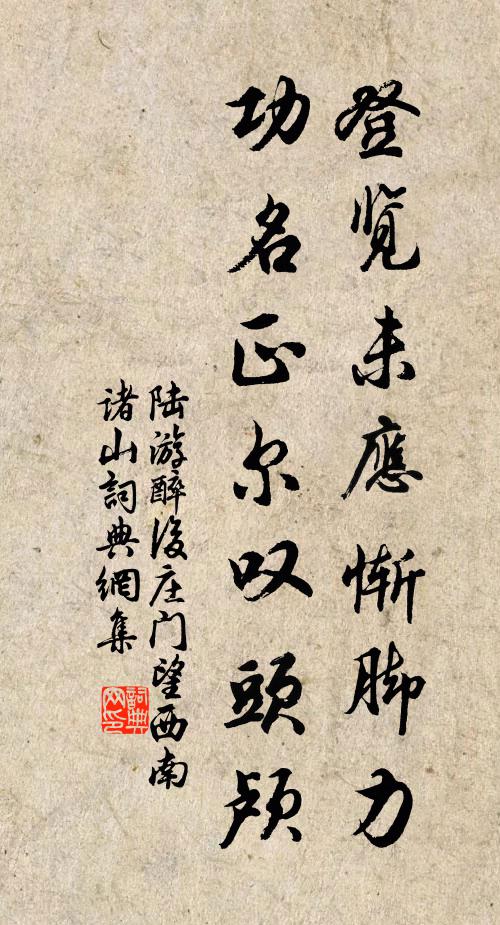 登览未應惭脚力
功名正尔叹頭颅
陆游醉后庄门望西南
诸山詞典網集
詞典网印